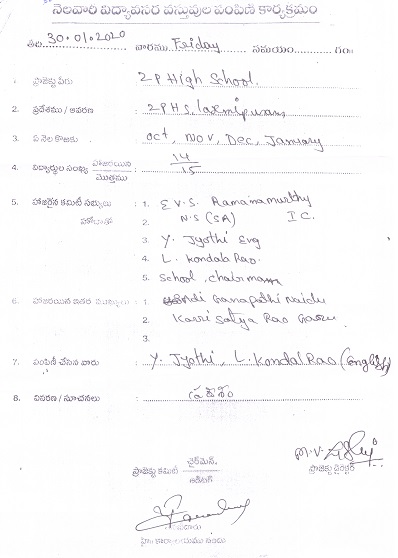 నెలవారి విద్యావసర వస్తువుల పంపిణి కార్యక్రమం
తేది 30.01.2020 వారము Friday సమయం గం
1. ప్రాజెక్టు పేరు ZP High School
2. ప్రదేశము / ఆవరణ ZPHS, laxmipuram
3. ఏ నెల కొఱకు oct, Nov, Dec, January
4. విద్యార్థుల సంఖ్య హాజరయిన / మొత్తము 14 / 15
5. హాజరైన కమిటీ సభ్యులు : 1. E V.S. Ramanamurthy
హోదాతో 2. N.S (SA) I C.
3. Y. Jyothi Eng
4. L. Kondala Rao.
5. School, chairman
6. హాజరయిన ఇతర : 1. Ganapathi Naidu
2. Karri Satya Rao Garu
3.
7. పంపిణి చేసిన వారు : Y. Jyothi, L. Kondal Rao (English)
8. వివరణ / సూచనలు :
ప్రాజెక్టు కమిటీ చైర్‌మెన్,
M.V.
ప్రాజెక్టు డైరెక్టర్